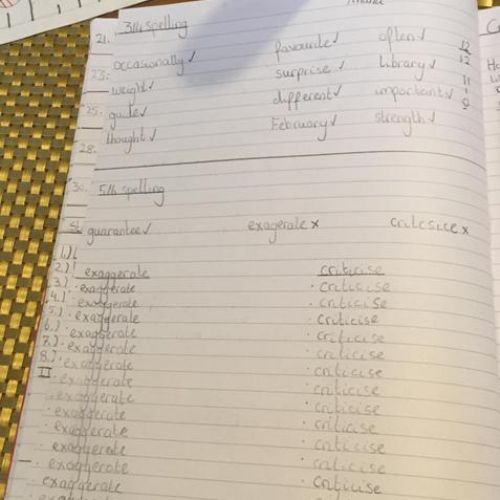 3th spelling
21.
occasionally ✓ favourite ✓ often ✓ 12
23. 12
weight ✓ surprise ✓ library ✓
25. guide ✓ different ✓ important ✓
thought ✓ February ✓ strength ✓
28.
30. 5th spelling
guarantee ✓ exagerate x x
1.)
2.) exaggerate criticise
3.) · exaggerate · criticise
4.) · exaggerate · criticise
5.) · exaggerate criticise
6.) · exaggerate · criticise
7.) · exaggerate · criticise
8.) · exaggerate · criticise
II · exaggerate · criticise
· exaggerate · criticise
· exaggerate · criticise
· exaggerate · criticise
· exaggerate · criticise
exaggerate · criticise